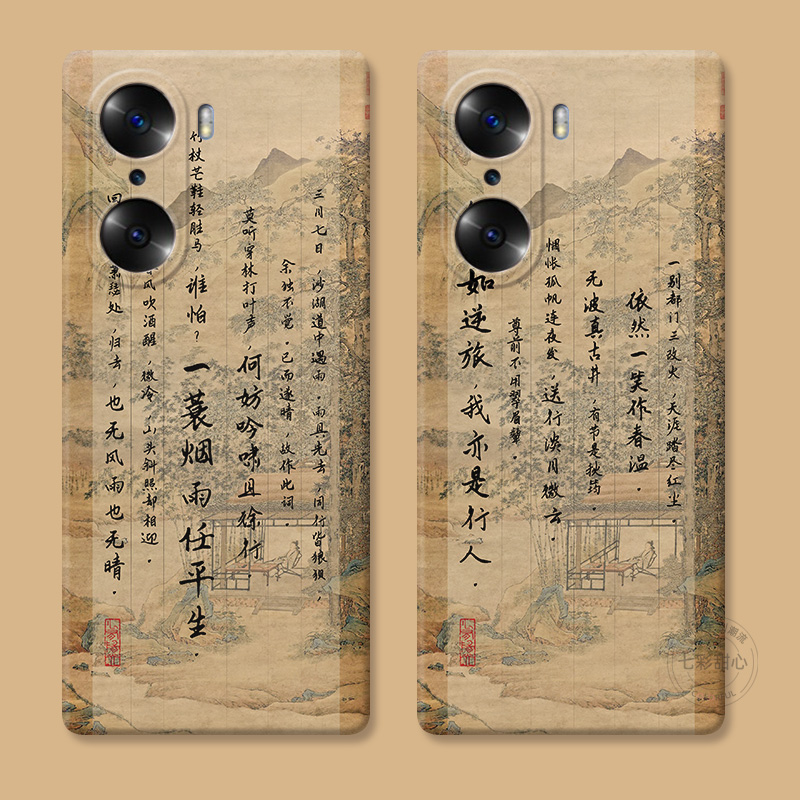 三月七日，沙湖道中遇雨。雨具先去，同行皆狼狈，
余独不觉。已而遂晴，故作此词。
莫听穿林打叶声，何妨吟啸且徐行
竹杖芒鞋轻胜马，谁怕？一蓑烟雨任平生。
风吹酒醒，微冷，山头斜照却相迎。
回 萧瑟处，归去，也无风雨也无晴。
一别都门三改火，天涯踏尽红尘。
依然一笑作春温。
无波真古井，有节是秋筠。
惆怅孤帆连夜发，送行淡月微云。
尊前不用翠眉颦。
如逆旅，我亦是行人。
七彩甜心